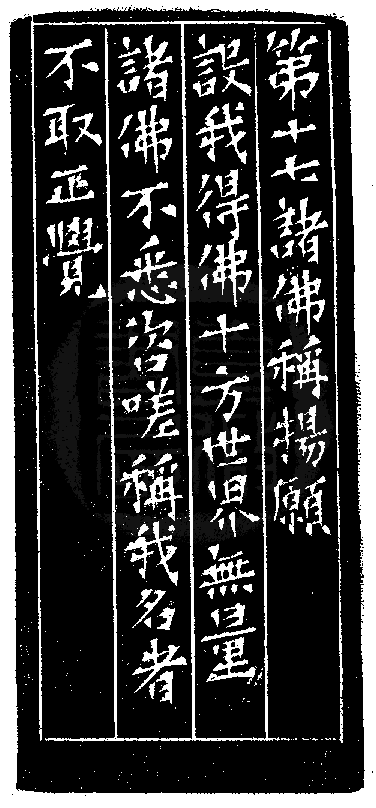 第十七諸佛稱揚願
設我得佛十方世界無量
諸佛不悉咨嗟稱我名者
不取正覺